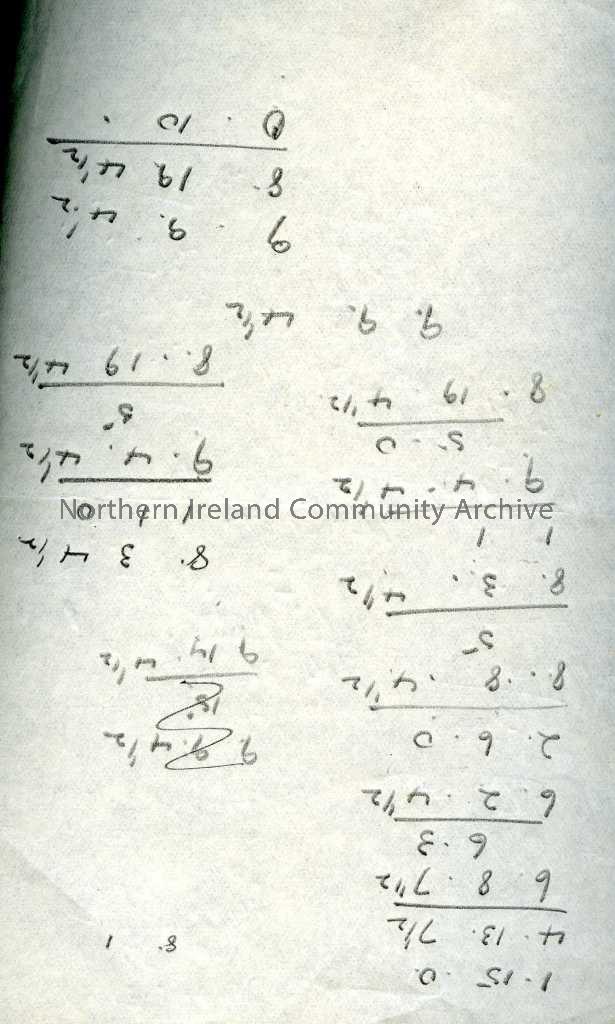 1.15.0
4.13.7½
6.8.7½
6.3
6.2.4½
2.6.0
8.8.4½
5
8.3.4½
1 1
9.4.4½
5.0
8.19 4½
9.9.4½
8.1
9.9.4½
15
9 14.4½
8.3 4½
1 1 0
9.4.4½
5
8.19 4½
9 9.4½
8.19 4½
0.10.
Northern Ireland Community Archive